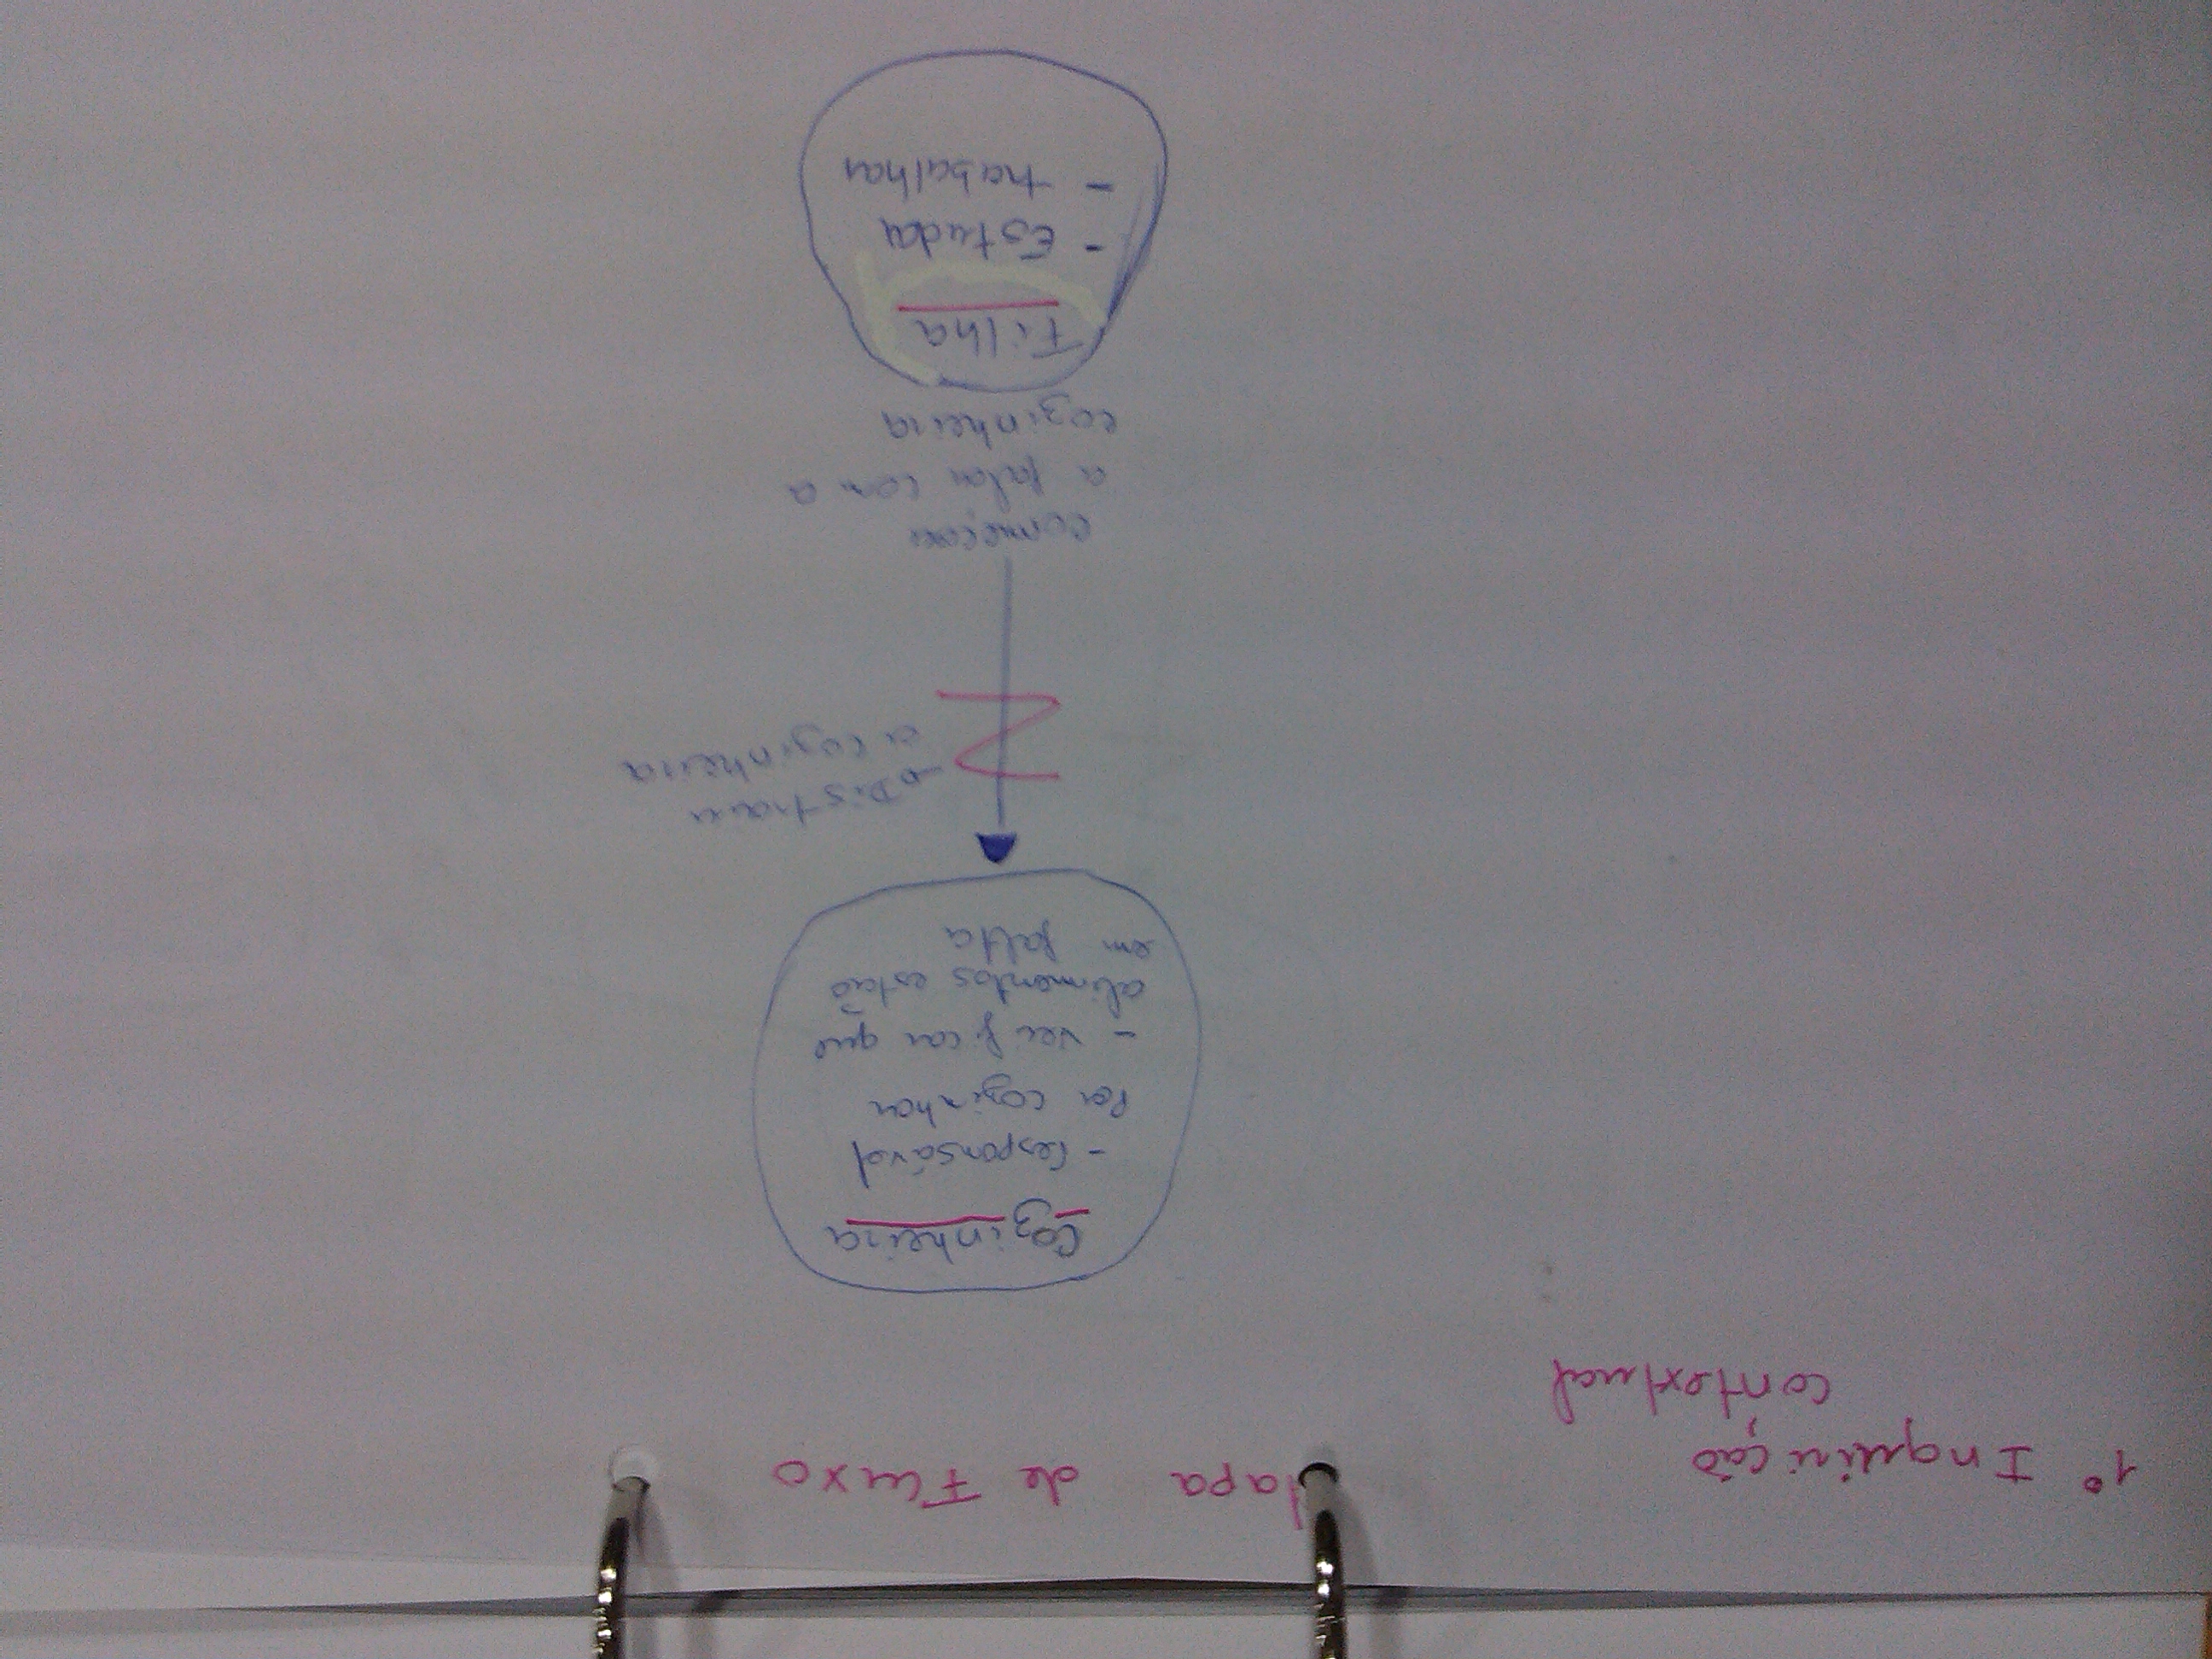 1º Inquirição
contextual
Mapa de Fluxo
Cozinheira
- Responsável
por cozinhar
- verificar que
alimentos estão
em falta
Distrair
a cozinheira
começar
a falar com a
cozinheira
Filha
- Estudar
- trabalhar